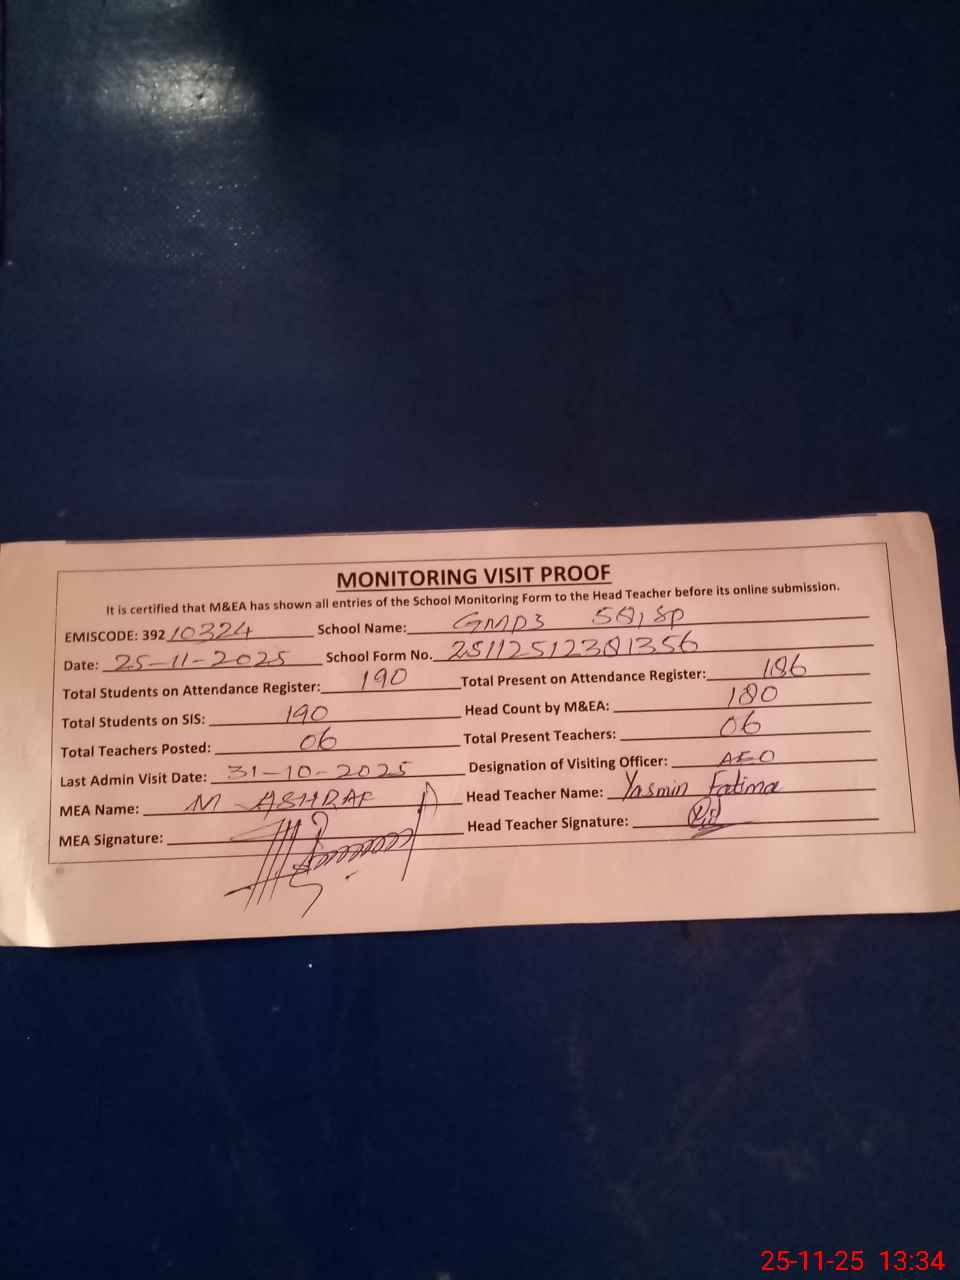 MONITORING VISIT PROOF
It is certified that M&EA has shown all entries of the School Monitoring Form to the Head Teacher before its online submission.
EMISCODE: 392 10324 School Name: GMPS 5Q, SP
Date: 25-11-2025 School Form No. 25112512381356
Total Students on Attendance Register: 190 Total Present on Attendance Register: 186
Total Students on SIS: 190 Head Count by M&EA: 180
Total Teachers Posted: 06 Total Present Teachers: 06
Last Admin Visit Date: 31-10-2025 Designation of Visiting Officer: AEO
MEA Name: M-ASHRAF Head Teacher Name: Yasmin Fatima
MEA Signature: Head Teacher Signature:
25-11-25 13:34